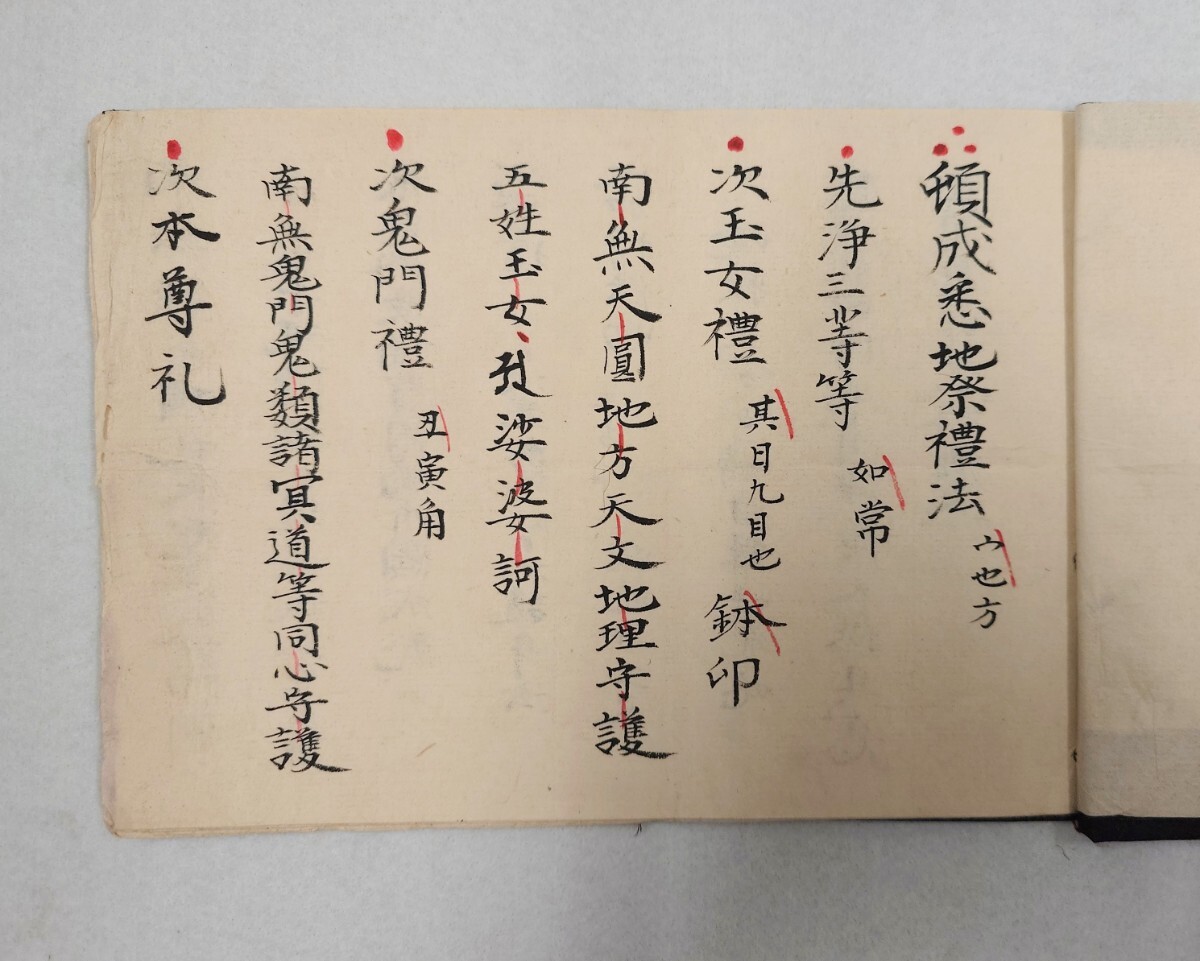 頓成悉地祭禮法 宀也方
先浄三業等 如常
次玉女禮 其日九目也 鉢印
南無天圓地方天文地理守護
五姓玉女 娑婆訶
次鬼門禮 丑寅角
南無鬼門鬼類諸冥道等同心守護
次本尊礼